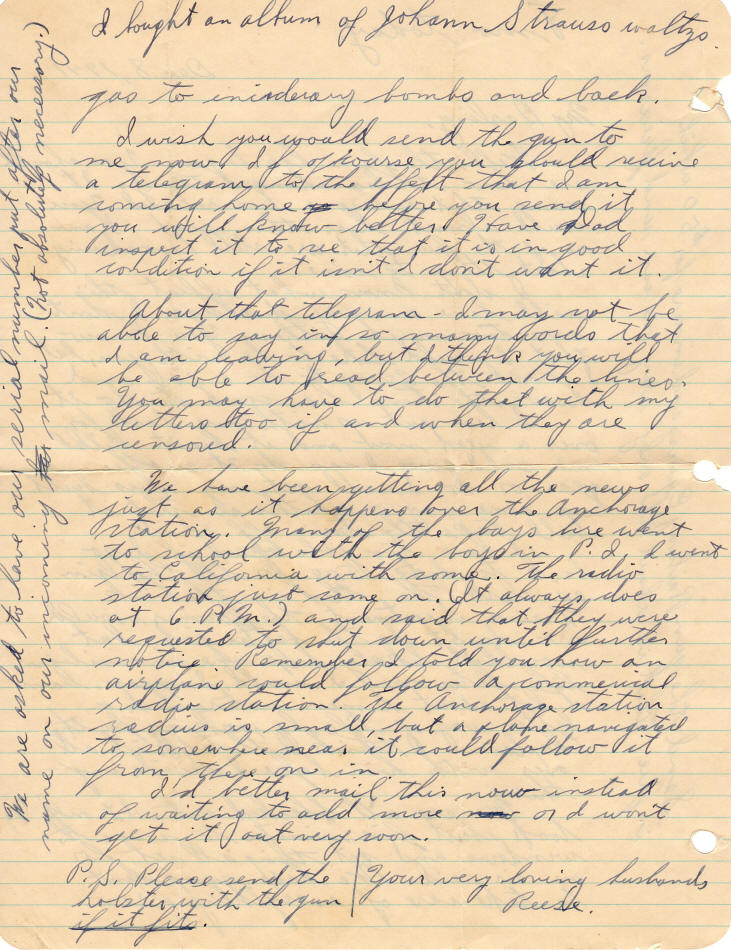 I bought an album of Johann Strauss waltzs.
gas to ininderary bombs and back.
I wish you would send the gun to
me now. If of kourse you should receive
a telegram to the effect that I am
coming home before you send it
you will know better. Have Dad
inspect it to see that it is in good
condition if it isn't I don't want it.
About that telegram - I may not be
able to say in so many words that
I am leaving, but I think you will
be able to read between the lines.
You may have to do that with my
letters too if and when they are
censored.
We have been getting all the news
just as it happens over the Anchorage
station. Many of the boys here went
to school with the boys in P.I. I went
to California with some. The radio
station just came on. (It always does
at 6 P.M.) and said that they were
requested to shut down until further
notice. Remember I told you how an
airplane could follow a commercial
radio station. The Anchorage station
radius is small, but a plane navigated
to somewhere near it could follow it
from there on in.
I'd better mail this now instead
of waiting to add more or I won't
get it out very soon.
Your very loving husband,
Reese.
P.S. Please send the
holster with the gun
if it fits.
We are asked to have our serial number put after our
name on our incoming mail. (Not absolutely necessary.)